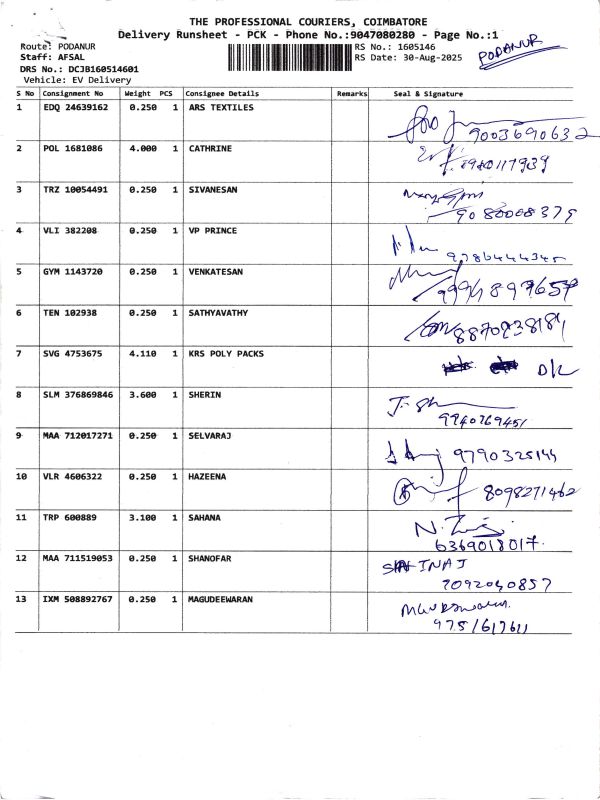 THE PROFESSIONAL COURIERS, COIMBATORE
Delivery Runsheet - PCK - Phone No.:9047080280 - Page No.:1
Route: PODANUR
RS No.: 1605146
PODANUR
Staff: AFSAL
RS Date: 30-Aug-2025
DRS No.: DCJB160514601
Vehicle: EV Delivery
S No Consignment No Weight PCS Consignee Details Remarks Seal & Signature
1 EDQ 24639162 0.250 1 ARS TEXTILES
9003690632
2 POL 1681086 4.000 1 CATHRINE
3 TRZ 10054491 0.250 1 SIVANESAN
9080008379
4 VLI 382208 0.250 1 VP PRINCE
9786444345
5 GYM 1143720 0.250 1 VENKATESAN
6 TEN 102938 0.250 1 SATHYAVATHY
7 SVG 4753675 4.110 1 KRS POLY PACKS
8 SLM 376869846 3.600 1 SHERIN
9940269451
9 MAA 712017271 0.250 1 SELVARAJ
9790325144
10 VLR 4606322 0.250 1 HAZEENA
8098271462
11 TRP 600889 3.100 1 SAHANA
6369018017
12 MAA 711519053 0.250 1 SHANOFAR
INAJ
7092040857
13 IXM 508892767 0.250 1 MAGUDEEWARAN
9751617611